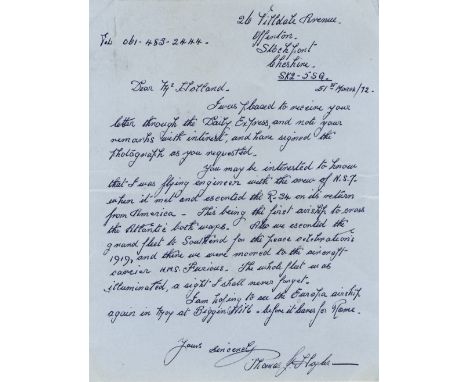 26 Tilldale Avenue.
Offerton.
Stockport
Cheshire.
SK2-5SQ.
Tel. 061-483-2444.
31st March/72.
Dear Mr Holland.
I was pleased to receive your
letter through the Daily Express, and note your
remarks with interest, and have signed the
photograph as you requested.
You may be interested to know
that I was flying engineer with the crew of N.S.7.
when it met and escorted the R.34 on its return
from America - This being the first airship to cross
the Atlantic both ways. Also we escorted the
grand fleet to Southend for the peace celebrations
1919, and there we were moored to the aircraft
carrier HMS. Furious. The whole fleet was
illuminated, a sight I shall never forget.
I am hoping to see the Europa airship
again in May at Biggin Hill - before it leaves for Rome.
Yours sincerely
Thomas